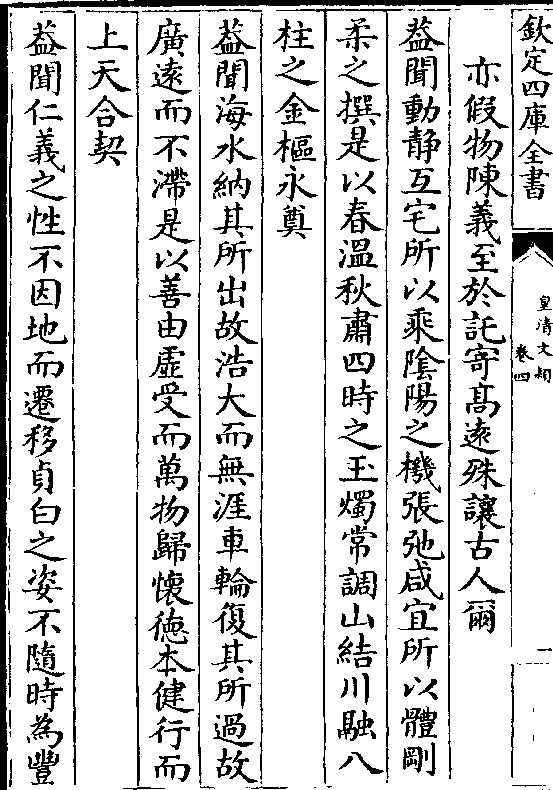 欽定四庫全書
皇清文頴
卷四
一
亦假物陳義至於託寄髙遠殊讓古人爾
葢聞動静互宅所以乘隂陽之機張弛咸宜所以體剛
柔之撰是以春温秋肅四時之玉燭常調山結川融八
柱之金樞永奠
葢聞海水納其所出故浩大而無涯車輪復其所過故
廣逺而不滯是以善由虚受而萬物歸懐徳本健行而
上天合契
葢聞仁義之性不因地而遷移貞白之姿不隨時為豐